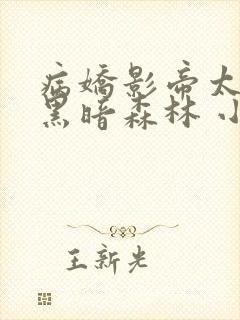 病娇影帝太
黑暗森林 小
王新光